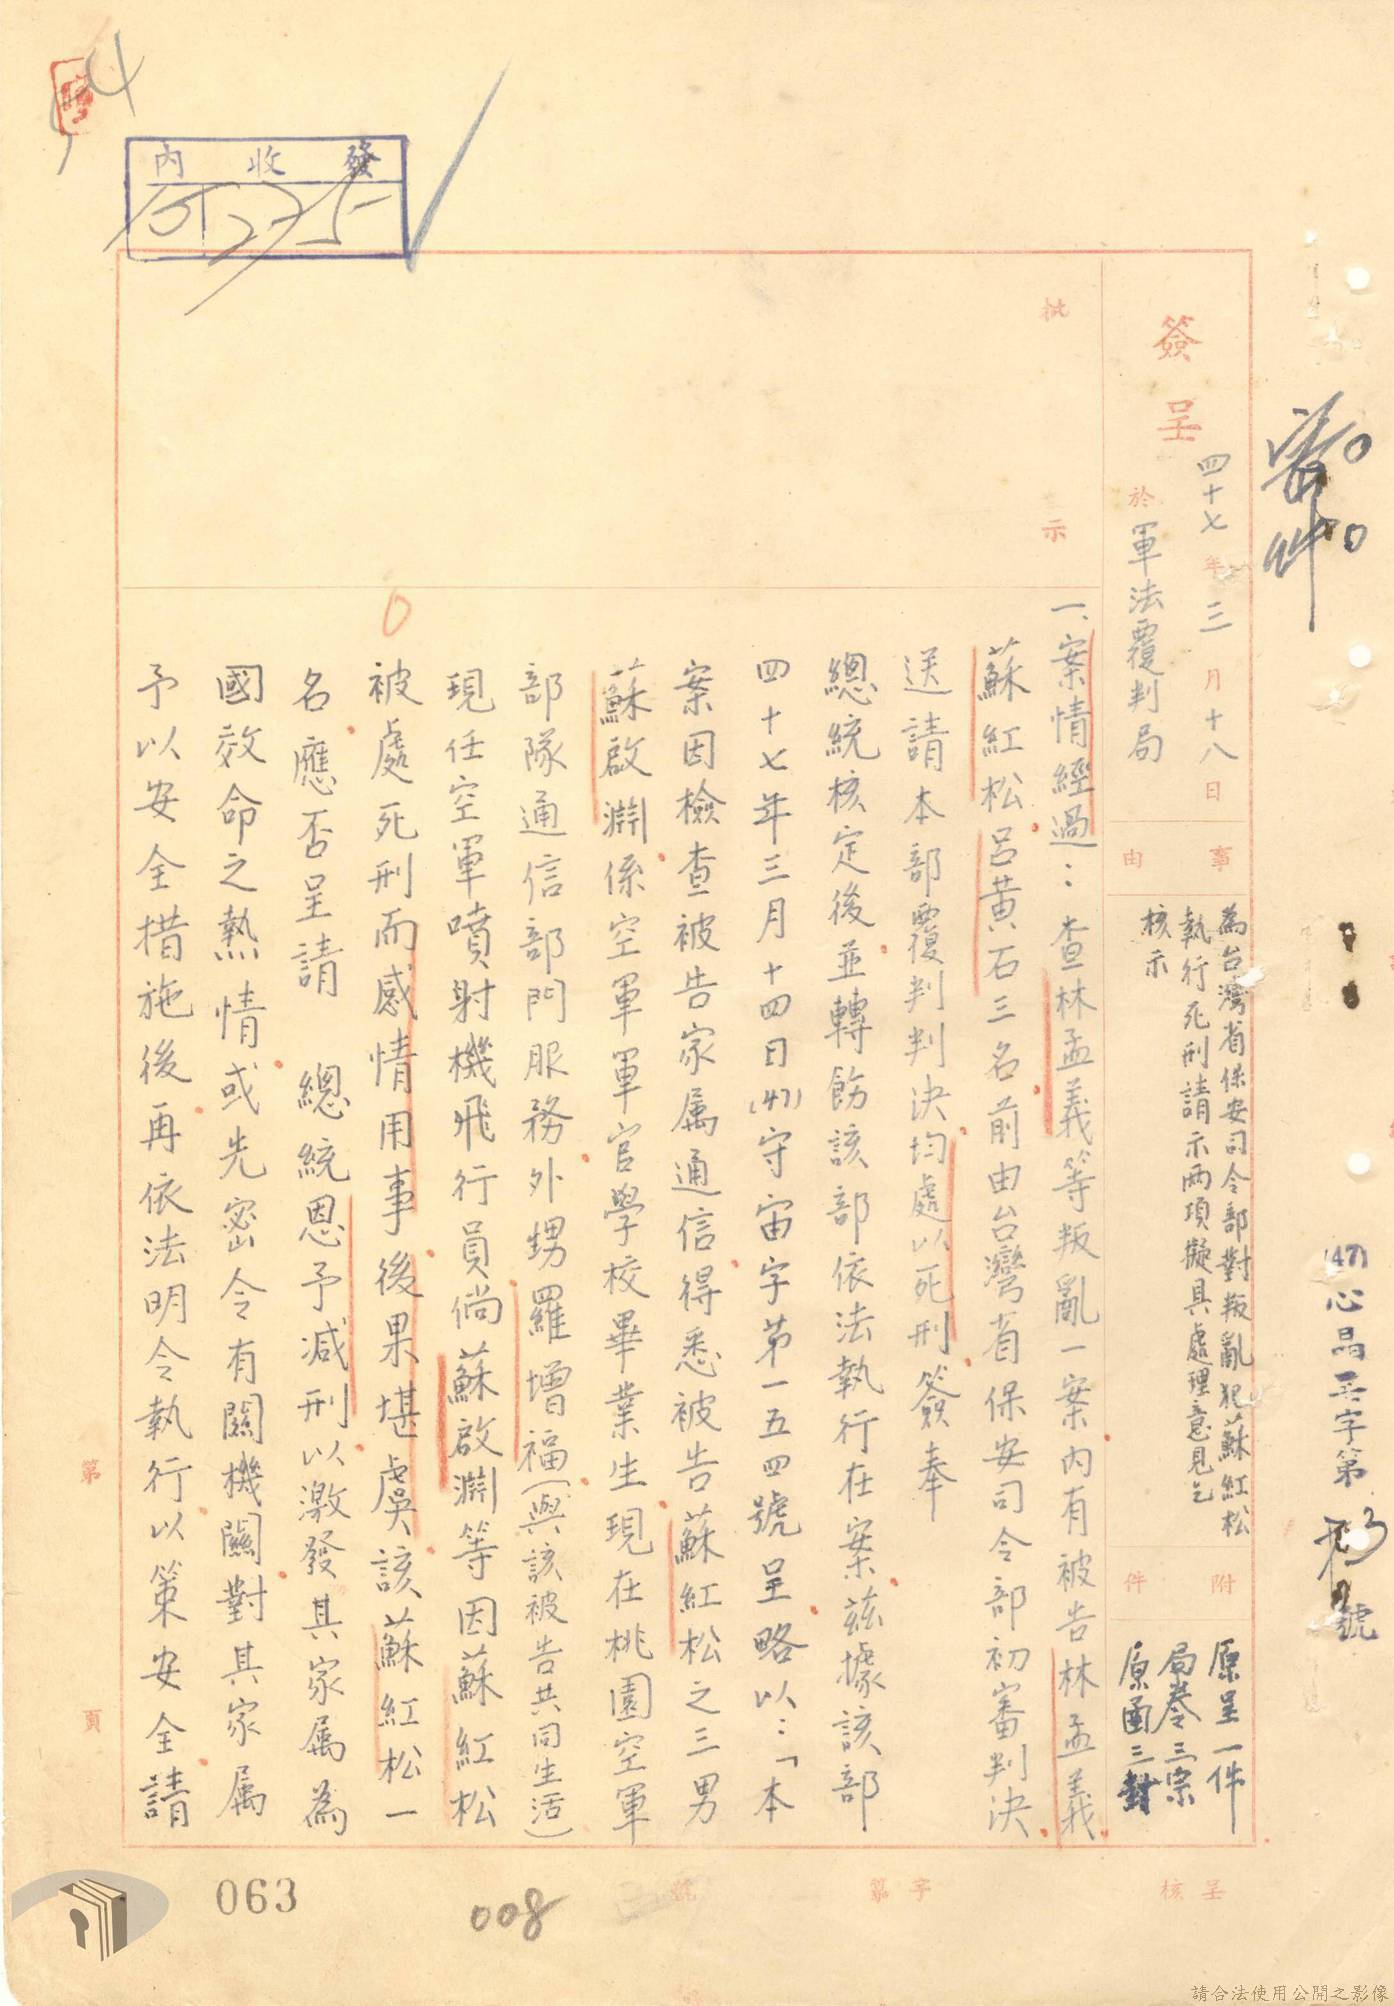 發收內
簽呈
四十七年三月十八日
於軍法覆判局
事由
為台灣省保安司令部對叛亂犯蘇紅松
執行死刑請示兩項擬具處理意見乞
核示
附件
原呈一件
局卷三宗
原函三封
(47)心晶字第號
批示
一、案情經過：查林孟義等叛亂一案內有被告林孟義
蘇紅松呂黃石三名前由台灣省保安司令部初審判決
送請本部覆判判決均處以死刑簽奉
總統核定後並轉飭該部依法執行在案茲據該部
四十七年三月十四日(47)守宙字第一五四號呈略以：「本
案因檢查被告家属通信得悉被告蘇紅松之三男
蘇啟渊係空軍軍官學校畢業生現在桃園空軍
部隊通信部門服務外甥羅增福(與該被告共同生活)
現任空軍噴射機飛行員倘蘇啟渊等因蘇紅松
被處死刑而感情用事後果堪虞該蘇紅松一
名應否呈請　總統恩予減刑以激發其家属為
國效命之熱情或先密令有關機關對其家属
予以安全措施後再依法明令執行以策安全請
第頁
呈核
字第
號
063
008
請合法使用公開之影像